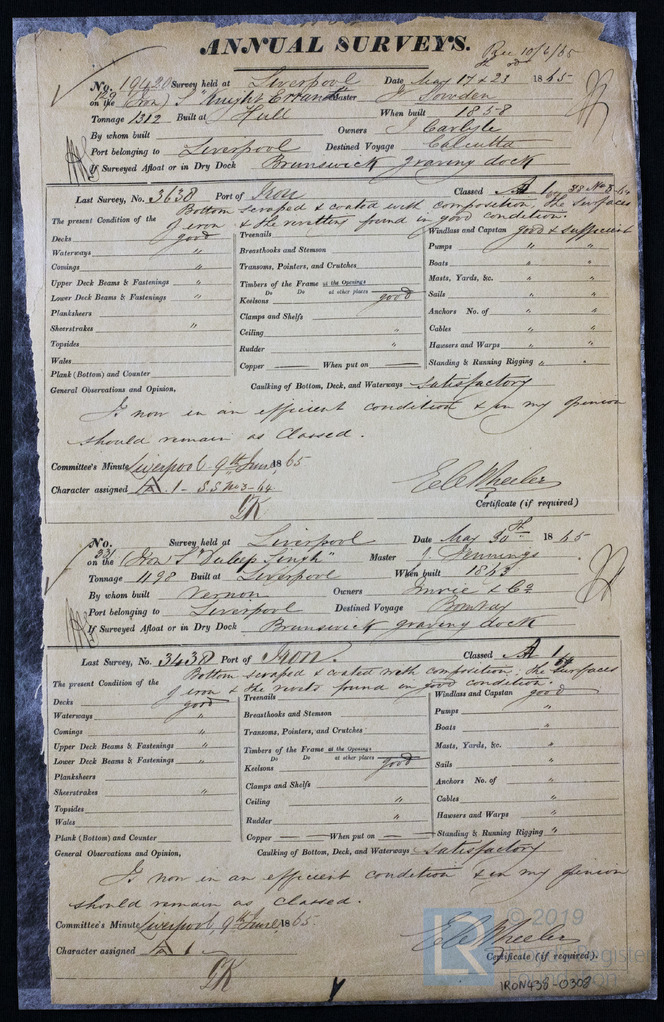 ANNUAL SURVEYS.
Rec 10/6/65
No. 19420 Survey held at Liverpool Date May 17 & 23 1865
on the (Iron) S "Knight Errant" Master J Sowden
Tonnage 1312 Built at Hull When built 1858
By whom built Owners J Carlyle
Port belonging to Liverpool Destined Voyage Calcutta
If Surveyed Afloat or in Dry Dock Brunswick graving dock
Last Survey, No. 3638 Port of Iron Classed A 1
Bottom scraped & coated with composition, the surfaces
The present Condition of the of iron & the rivetting found in good condition.
Decks good Treenails Windlass and Capstan good & sufficient
Waterways " Breasthooks and Stemson Pumps " "
Comings " Transoms, Pointers, and Crutches Boats " "
Upper Deck Beams & Fastenings " Timbers of the Frame at the Openings Masts, Yards, &c. " "
Lower Deck Beams & Fastenings " Do Do at other places Sails " "
Planksheers Keelsons good Anchors No. of " "
Sheerstrakes " Clamps and Shelfs Cables " "
Topsides Ceiling " Hawsers and Warps " "
Wales Rudder " Standing & Running Rigging " "
Plank (Bottom) and Counter Copper When put on
General Observations and Opinion, Caulking of Bottom, Deck, and Waterways Satisfactory
Is now in an efficient condition & in my opinion
should remain as Classed.
Committee's Minute Liverpool 9th June 1865
Character assigned A 1 - S.S No 3-64 E C Wheeler
Certificate (if required)
No. Survey held at Liverpool Date May 30th 1865
on the (Iron) S "Duleep Singh" Master J. Jennings
Tonnage 1198 Built at Liverpool When built 1863
By whom built Vernon Owners Imrie & Co
Port belonging to Liverpool Destined Voyage Bombay
If Surveyed Afloat or in Dry Dock Brunswick graving dock
Last Survey, No. 3438 Port of Iron. Classed A 1 64
Bottom scraped & coated with composition, the surfaces
The present Condition of the of iron & the rivets found in good condition.
Decks good Treenails Windlass and Capstan good
Waterways " Breasthooks and Stemson Pumps "
Comings " Transoms, Pointers, and Crutches Boats "
Upper Deck Beams & Fastenings " Timbers of the Frame at the Openings Masts, Yards, &c. "
Lower Deck Beams & Fastenings " Do Do at other places Sails "
Planksheers Keelsons good Anchors No. of "
Sheerstrakes " Clamps and Shelfs Cables "
Topsides Ceiling " Hawsers and Warps "
Wales Rudder " Standing & Running Rigging "
Plank (Bottom) and Counter Copper When put on
General Observations and Opinion, Caulking of Bottom, Deck, and Waterways Satisfactory
Is now in an efficient condition & in my opinion
should remain as Classed.
Committee's Minute Liverpool 9th June 1865.
Character assigned A 1 E C Wheeler
Certificate (if required).
LR © 2019
Lloyd's Register
Foundation
IRON438-0308